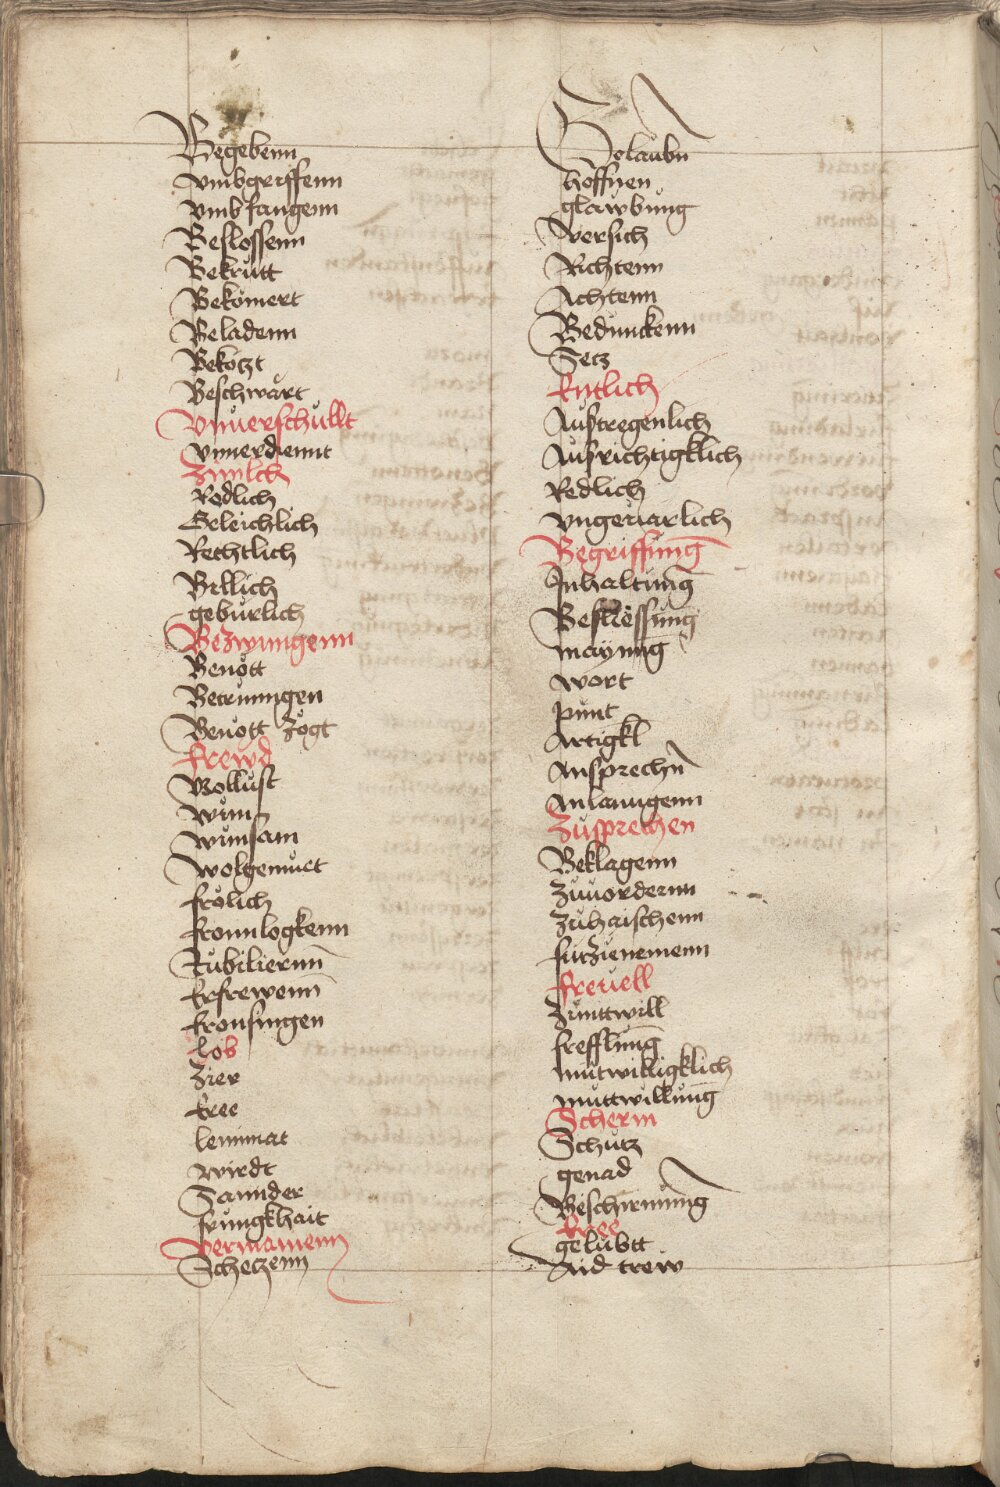 Begebenn
vmbgriffenn
vmbfangenn
Beslossenn
Bekrutt
Bekömert
Beladenn
Bekotzt
Beschwärt
vnuerschullt
vnuerdiennt
Zimlich
Redlich
Geleichlich
Rechtlich
Billich
geburlich
Bezwungenn
Benött
Betrunngen
Benött Zogt
frewd
Wollust
wunn
wunsam
wolgemuet
frölich
fronnlogkenn
Jubiliernn
Erfrewenn
fronsingen
Lob
Zier
Eree
lewmat
wirdt
Sannder
frungkhait
vermainenn
Schetzenn
Gelaubn
hoffnen
glawbung
versich
Richtenn
Achtenn
Bedunckenn
Setz
Entlich
Austregenlich
Ausrichtigklich
Redlich
vngeuarlich
Begriffung
Innhaltung
Beslressung
maynung
wort
punt
Artigkl
Ansprechn
Anlanngenn
Zusprechen
Beklagenn
Zuuordernn
Zuhaischenn
furzienemenn
freuell
Zmuttwill
frefflung
mutwilligklich
muttwillung
Scherm
Schutz
genad
Beschirmung
Eree
gelubtt
Aid trew